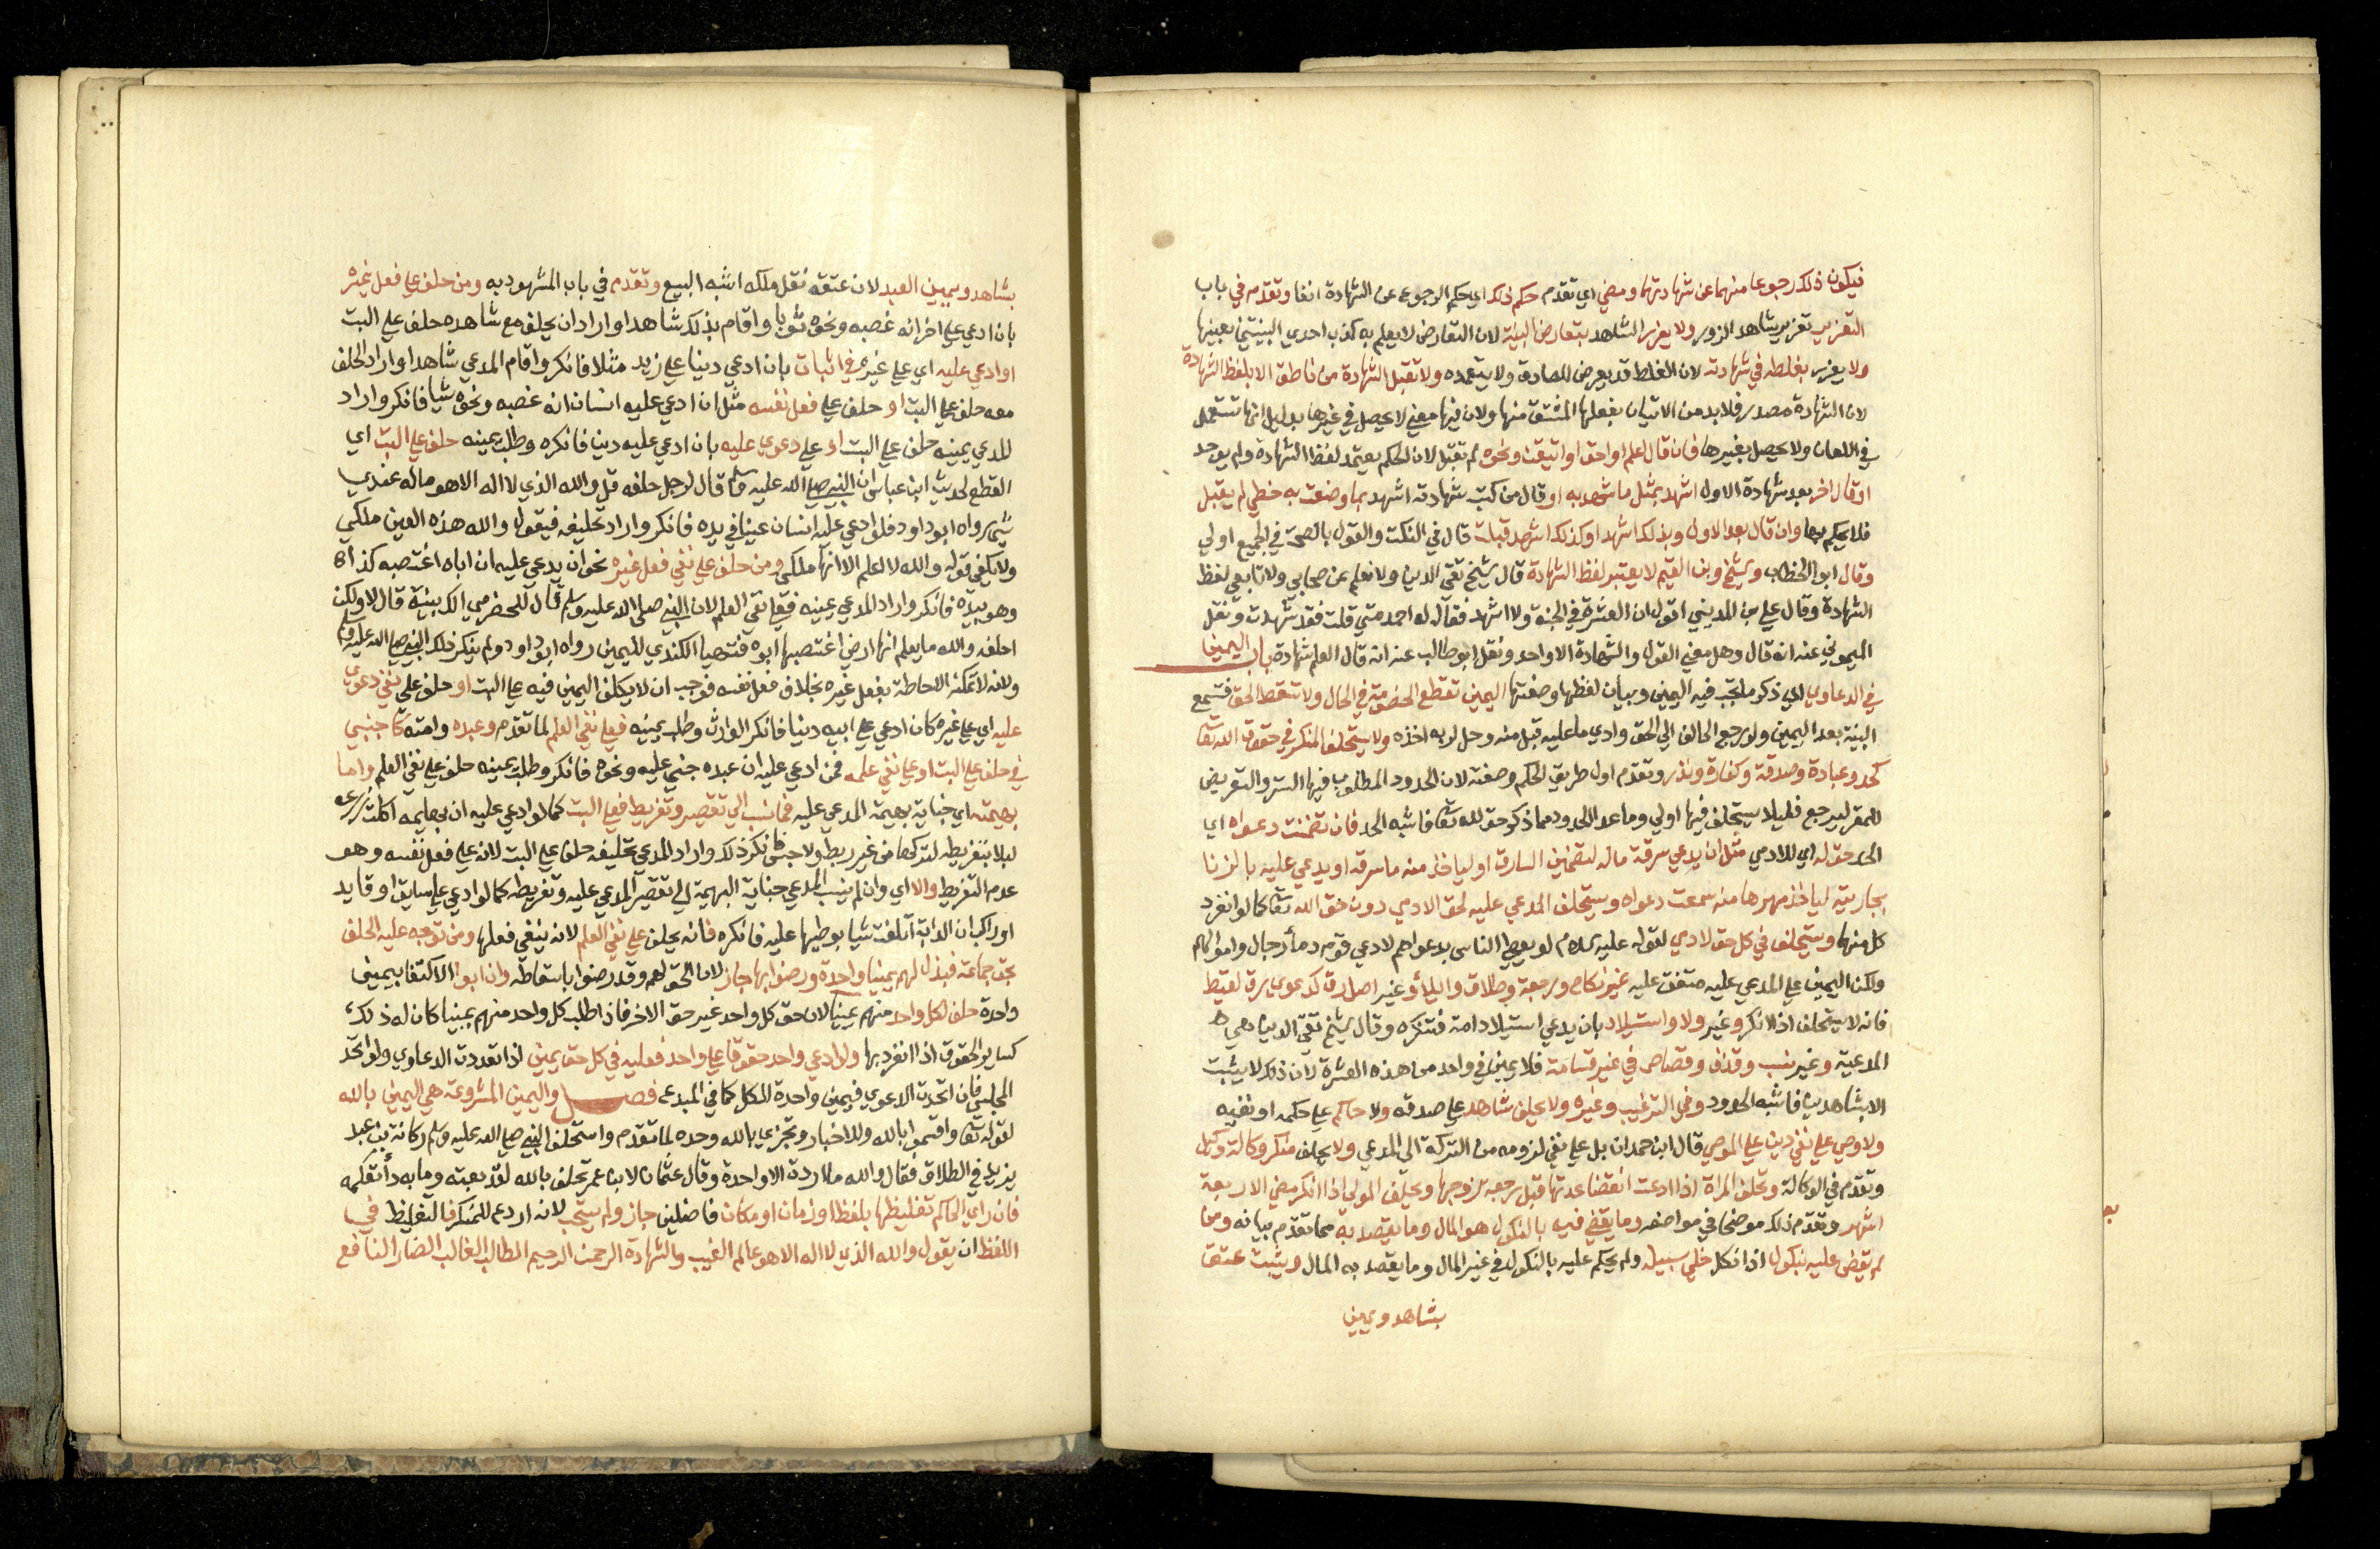 فيكون ذلك رجوعا منهما عن شهادتهما ومضي اي تقدم حكم ذلك اي حكم الرجوع عن الشهادة انفا وتقدم في باب
التعزير تعزير شاهد الزور ولا يعزر الشاهد بتعارض البينة لان التعارض لا يعلم به كذب احدي البينتين بعينها
ولا يعزر بغلطه في شهادته لان الغلط قد يعرض للصادق ولا يتعمده ولا تقبل الشهادة من ناطق الا بلفظ الشهادة
لان الشهادة مصدر فلا بد من الاتيان بفعلها المشتق منها ولان فيها معني لا يحصل في غيرها بدليل انها تستعمل
في اللعان ولا يحصل بغيرها فان قال اعلم او احق او اتيقن ونحوه لم تقبل لان الحكم يعتمد لفظ الشهادة ولم يوجد
او قال اخر بعد شهادة الاول اشهد بمثل ما شهد به او قال من كتب شهادته اشهد بما وضعت به خطي لم يقبل
فلا يحكم بها وان قال بعد الاول وبذلك اشهد او كذلك اشهد قبلت قال في النكت والقول بالصحة في الجميع اولي
وقال ابو الخطاب والشيخ وبن القيم لا يعتبر لفظ الشهادة قال الشيخ تقي الدين ولا نعلم عن صحابي ولا تابعي لفظ
الشهادة وقال علي بن المديني اقول ان العشرة في الجنة ولا اشهد فقال له احمد متي قلت فقد شهدت ونقل
الميموني عنه انه قال وهل معني القول والشهادة الا واحد ونقل ابو طالب عنه انه قال العلم شهادة باب اليمين
في الدعاوي اي ذكر ما يجب فيه اليمين وبيان لفظها وصفتها اليمين تقطع الخصومة في الحال ولا تسقط الحق فتسمع
البينة بعد اليمين ولو رجع الحالف الي الحق وادي ما عليه قبل منه وحل لربه اخذه ولا يستحلف المنكر في حقوق الله تعا
كحد وعبادة وصدقة وكفارة ونذر وتقدم اول طريق الحكم وصفته لان الحدود المطلوب فيها الستر والتعريض
للمقر ليرجع فليلا يستحلف فيها اولي وما عدا الحدود مما ذكر حق لله تعا فاشبه الحد فان تضمنت دعواه اي
الحد حق له اي للادمي مثل ان يدعي سرقة ماله لتضمين السارق او لياخذ منه ما سرقه او يدعي عليه بالزنا
بجاريته لياخذ مهرها منه سمعت دعواه ويستحلف المدعي عليه لحق الادمي دون حق الله تعا كما لو انفرد
كل منهما ويستحلف في كل حق لادمي لقوله عليه السلام لو يعطي الناس بدعواهم لادعي قوم دما رجال واموالهم
ولكن اليمين علي المدعي عليه متفق عليه غير نكاح ورجعة وطلاق وايلاء وغير اصل رق كدعوي رق لقيط
فانه لا يستحلف اذا انكر وغير ولا واستيلاد بان يدعي استيلاد امة فتنكره وقال الشيخ تقي الدين هي
المدعية وغير نسب وقذف وقصاص في غير قسامة فلا يمين في واحد من هذه العشرة لان ذلك لا يثبت
الا بشاهدين فاشبه الحدود وفي الترغيب وغيره ولا يحلف شاهد علي صدقه ولا حاكم علي حكمه او نفيه
ولا وصي علي نفي دين علي الموصي قال ابن حمدان بل علي نفي لزومه من التركة الي المدعي ولا يحلف منكر وكالة وكيل
وتقدم في الوكالة وتحلف المراة اذا ادعت انقضا عدتها قبل رجعة زوجها ويحلف المولي اذا انكر مضي الاربعة
اشهر وتقدم ذلك موضحا في مواضعه وما يقضي فيه بالنكول هو المال وما يقصد به مما تقدم بيانه ومن
لم يقض عليه بنكول اذا نكل خلي سبيله ولم يحكم عليه بالنكول في غير المال وما يقصد به المال ويثبت عتق
بشاهد ويمين
بشاهد ويمين العبد لان عتقه نقل ملك اشبه البيع وتقدم في باب المشهود به ومن حلف علي فعل غيره
بان ادعي علي اخر انه غصبه ونحوه ثوبا واقام بذلك شاهدا واراد ان يحلف مع شاهده حلف علي البت
او ادعي عليه اي علي غيره في اثبات بان ادعي دينا علي زيد مثلا فانكر واقام المدعي شاهدا واراد الحلف
معه حلف علي البت او حلف علي فعل نفسه مثل ان ادعي عليه انسان انه غصبه ونحوه شيا فانكر واراد
المدعي يمينه حلف علي البت او علي دعوي عليه بان ادعي عليه دين فانكره وطلب يمينه حلف علي البت اي
القطع لحديث ابن عباس ان النبي صلي الله عليه وسلم قال لرجل حلفه قل والله الذي لا اله الا هو ماله عندي
شي رواه ابو داود فلو ادعي عليه انسان عينا في يده فانكر واراد تحليفه فيقول والله هذه العين ملكي
ولا يكفي قوله والله لا اعلم الا انها ملكي ومن حلف علي نفي فعل غيره نحو ان يدعي عليه ان اباه اغتصبه كذا
وهو بيده فانكر واراد المدعي يمينه فعلي نفي العلم لان النبي صلى الله عليه وسلم قال للحضرمي الك بينة قال لا ولكن
احلفه والله ما يعلم انها ارضي اغتصبها ابوه فتهيا الكندي لليمين رواه ابو داود ولم ينكر ذلك النبي صلي الله عليه وسلم
ولانه لا تمكنه الاحاطة بفعل غيره بخلاف فعل نفسه فوجب ان لا يكلف اليمين فيه علي البت او حلف علي نفي دعوي
عليه اي علي غيره كان ادعي علي ابيه دينا فانكر الوارث وطلب يمينه فعلي نفي العلم لما تقدم وعبده وامته كاجنبي
في حلف علي البت او علي نفي علمه فمن ادعي عليه ان عبده جني عليه ونحوه فانكر وطلب يمينه حلف علي نفي العلم واما
بهيمته اي جناية بهيمة المدعي عليه فما نسب الي تقصير وتفريط فعلي البت كما لو ادعي عليه ان بهايمه اكلت زرعه
ليلا بتفريطه لتركها من غير ربط ولا حبس فانكر ذلك واراد المدعي تحليفه حلف علي البت لانه علي فعل نفسه وهو
عدم التفريط والا اي وان لم ينسب المدعي جناية البهيمة الي تقصير المدعي عليه وتفريطه كما لو ادعي علي سايق او قايد
او راكب ان الدابة اتلفت شيا بوطيها عليه فانكره فانه يحلف علي نفي العلم لانه ينفي فعلها ومن توجه عليه الحلف
بحق جماعة فبذل لهم يمينا واحدة ورضوا بها جاز لان الحق لهم وقد رضوا باسقاطه وان ابوا الاكتفا بيمين
واحدة حلف لكل واحد منهم يمينا لان حق كل واحد غير حق الاخر فاذا طلب كل واحد منهم يمينا كان له ذلك
كساير الحقوق اذا انفرد بها ولو ادعي واحد حقوقا علي واحد فعليه في كل حق يمين اذا تعددت الدعاوي ولو اتحد
المجلس فان اتحدت الدعوي فيمين واحدة للكل كما في المبدع فصل واليمين المشروعة هي اليمين بالله
لقوله تعا واقسموا بالله وللاخبار وتجزي بالله وحده لما تقدم واستحلف النبي صلي الله عليه وسلم ركانة بن عبد
يزيد في الطلاق فقال والله ما اردت الا واحدة وقال عثمان لابن عمر تحلف بالله لقد بعته وما به داء تعلمه
فان راي الحاكم تغليظها بلفظ او زمان او مكان فاضلين جاز ولم يستحب لانه اردع للمنكر فالتغليظ في
اللفظ ان يقول والله الذي لا اله الا هو عالم الغيب والشهادة الرحمن الرحيم الطالب الغالب الضار النافع